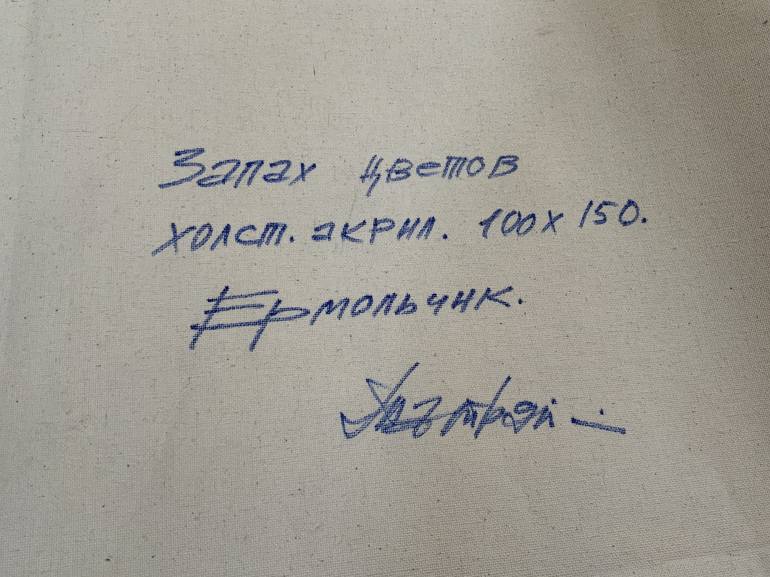 Запах цветов
холст. акрил. 100х150.
Ермольчик.